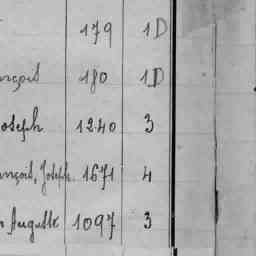 179 1D
nçois 180 1D
oseph 1240 3
nçois, Joseph 1671 4
Auguste 1097 3